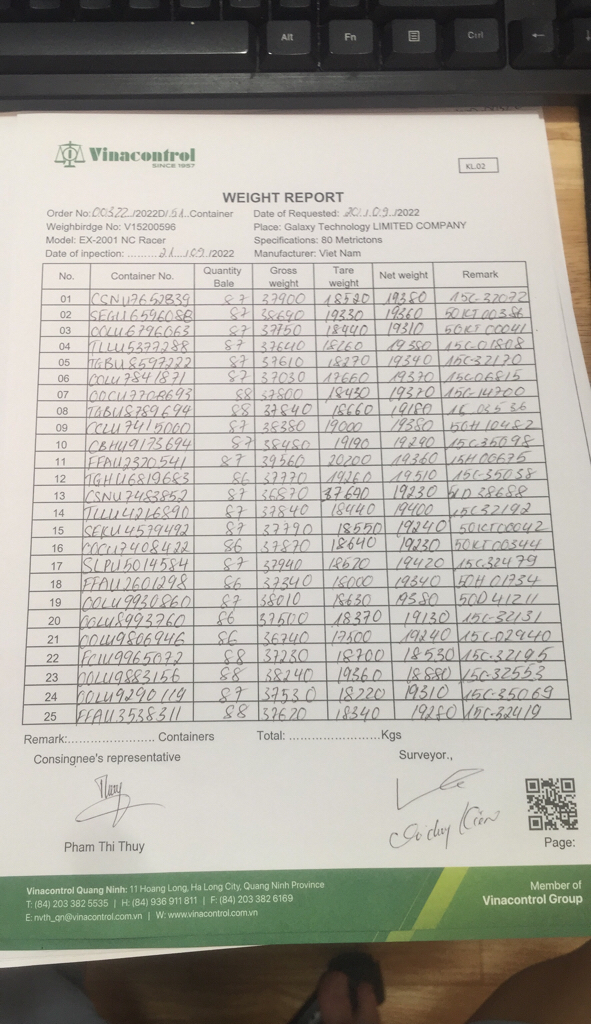 Alt
Fn
Ctrl
Vinacontrol
SINCE 1957
KL.02
WEIGHT REPORT
Order No: 00322 /2022D/ 51 Container Date of Requested: 20 / 09 /2022
Weighbirdge No: V15200596 Place: Galaxy Technology LIMITED COMPANY
Model: EX-2001 NC Racer Specifications: 80 Metrictons
Date of inpection: ......... 21 /09 /2022 Manufacturer: Viet Nam
No. Container No. Quantity Bale Gross weight Tare weight Net weight Remark
01 CSNU7652839 87 37900 18520 19380 15C-32072
02 87 38690 19330 19360
03 OOLU6796063 87 37750 18440 19310 50KT 00041
04 TLLU5377288 87 37640
05 TGBU8597222 87 37610 18270 19340 15C-32170
06 OOLU7841871 87 37030 17660 19370 15C06815
07 88 37800 18430 19370 15C-14700
08 TGBU8789694 88 37840 18660 19180
09 87 38380 19000 19380
10 CBHU9173694 87 38480 19190 19290 15C-35098
11 FFAU2320541 87 39560 20200 19360 15H00675
12 TGHU6819683 86 37770 19260 19510 15C-35038
13 CSNU7483852 87 36870 19230
14 TLLU4216890 87 37840 18440 19400 15C-32192
15 SEKU4579492 87 37790 18550 19240 50KT00042
16 86 37870 18640 19230 50KT00344
17 SLPU5014584 87 37940 18520 19420 15C-32479
18 FFAU2601298 86 37340 18000 19340 50H 01734
19 OOLU9930860 87 38010 18630 19380 50D41211
20 OOLU8993760 86 37500 18370 19130 15C-32131
21 OOLU9806946 86 36740 17500 19240 15C-02940
22 FCIU9965072 88 37230 18700 18530 15C-32195
23 OOLU9883156 88 38240 19360 18880 15C-32553
24 OOLU9290119 87 37530 18220 19310 15C-35069
25 FFAU3538311 88 37620 18340 19280 15C-32419
Remark:........................ Containers Total: ........................Kgs
Consingnee's representative Surveyor.,
Thuy
Pham Thi Thuy
Page:
Vinacontrol Quang Ninh: 11 Hoang Long, Ha Long City, Quang Ninh Province
T: (84) 203 382 5535 | H: (84) 936 911 811 | F: (84) 203 382 6169
E: nvth_qn@vinacontrol.com.vn | W: www.vinacontrol.com.vn
Member of
Vinacontrol Group